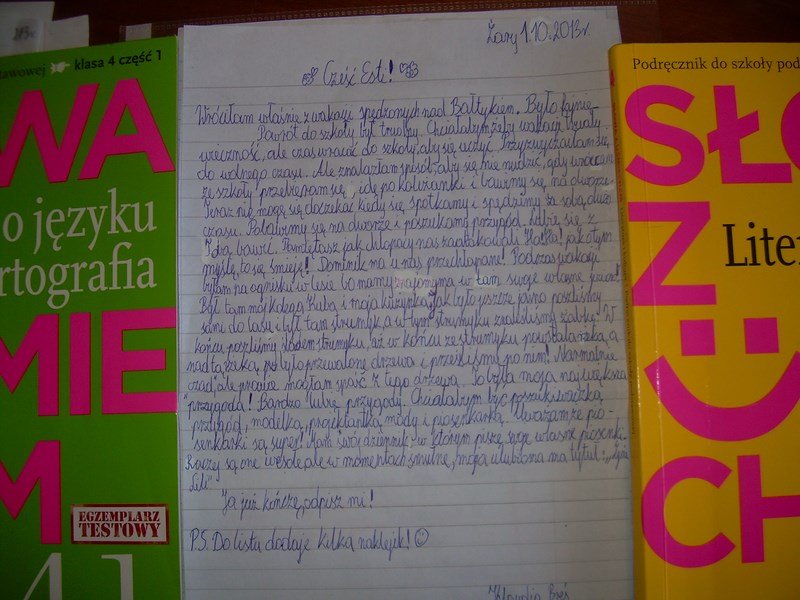 Żary, 1.10.2013r.
Cześć Esti!
Wróciłam właśnie z wakacji spędzonych nad Bałtykiem. Było fajnie.
Powrót do szkoły był trudny. Chciałabym żeby wakacje trwały
wieczność, ale czas wracać do szkoły, aby się uczyć. Przyzwyczaiłam się
do wolnego czasu. Ale znalazłam sposób, aby się nie nudzić, gdy wracam
ze szkoły przebieram się, idę po koleżanki i bawimy się na dworze.
Teraz nie mogę się doczekać kiedy się spotkamy i spędzimy ze sobą dużo
czasu. Pobawimy się na dworze i poszukamy przygód. Lubię się z
Tobą bawić. Pamiętasz jak chłopacy nas zaatakowali jak o tym
myślę, to się śmieję! Dominik ma u nas przechlapane! Podczas wakacji
byłam na ognisku w lesie bo mamy znajomy ma tam swoje własne jezioro!
Był tam mój kolega Kuba i moja kuzynka, jak było jeszcze jasno poszliśmy
sami do lasu i był tam strumyk a w tym strumyku znaleźliśmy żabkę! W
końcu poszliśmy śladem strumyku, aż w końcu ze strumyku powstała rzeka, a
nad tą rzeką było przewalone drzewo i przeszliśmy po nim! Normalnie
czad, ale prawie spaść z tego drzewa. To była moja największa
przygoda! Bardzo lubię przygody. Chciałabym być poszukiwaczką
przygód, modelką, projektantką mody i piosenkarką. Uważam że pio-
senkarki są super! Mam swój dziennik w którym piszę swoje własne piosenki.
Raczej są one wesołe ale w momentach smutne, moja ulubiona ma tytuł:
Ja już kończę, odpisz mi!
P.S. Do listu dodaje kilka naklejek! ☺
Klaudia
tawowej klasa 4 część 1
WA
o języku
rtografia
MIE
M
EGZEMPLARZ
TESTOWY
41
Podręcznik do szkoły pod
SŁO
Z
Liter
:)
CH